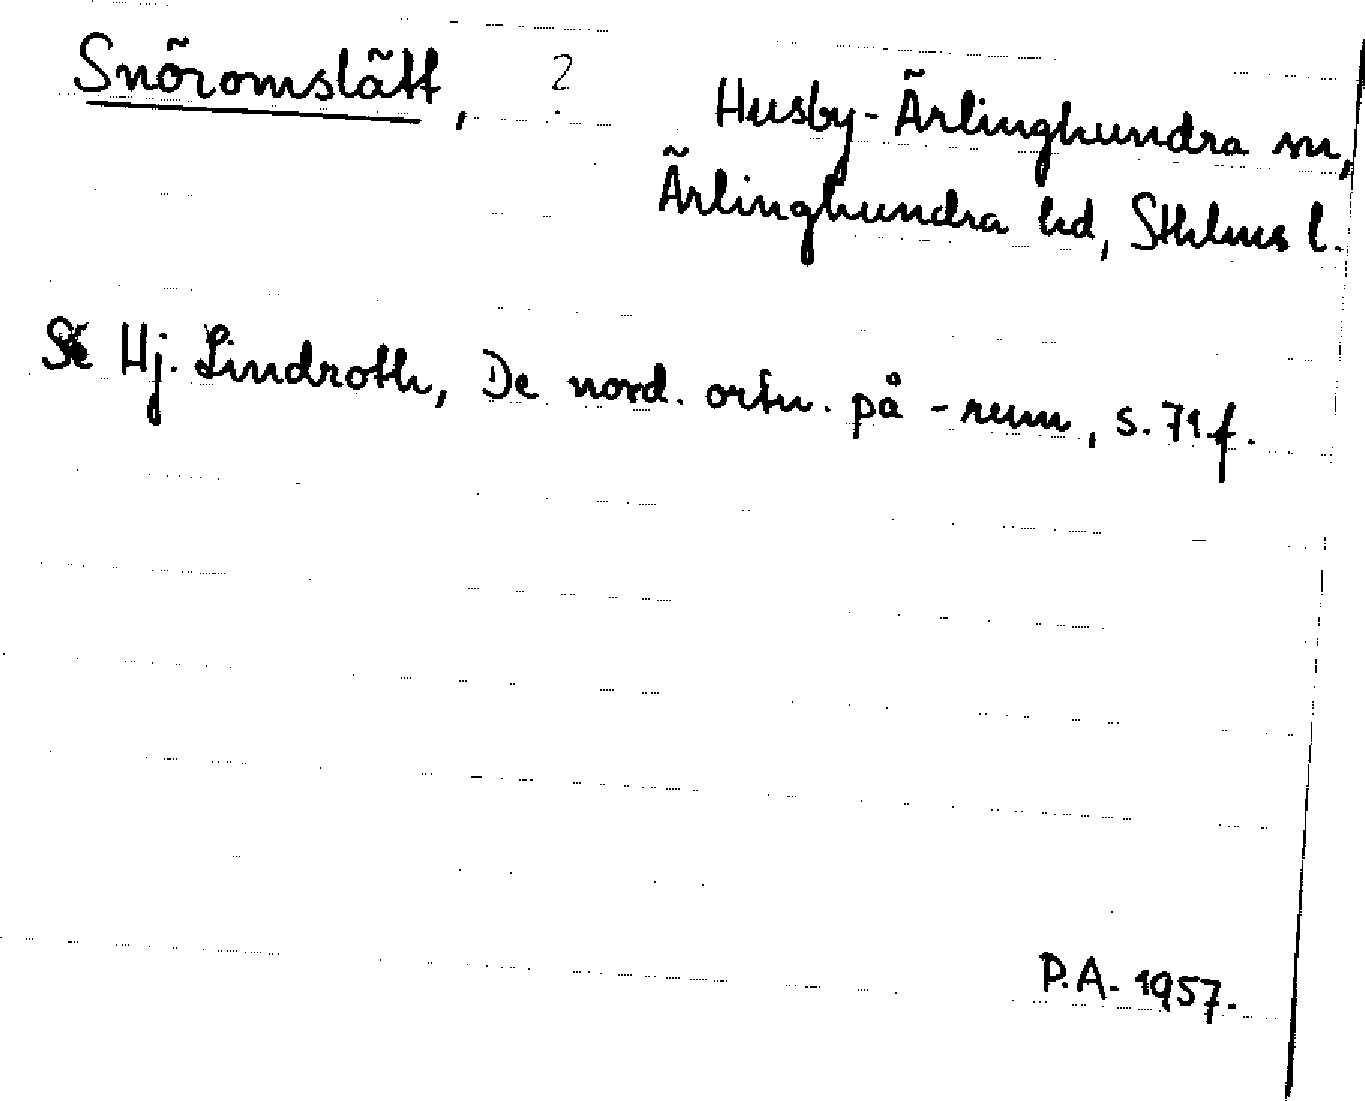 Snöromslätt, ?
Husby-Ärlinghundra sn,
Ärlinghundra hd, Sthlms l.
Se Hj. Lindroth, De nord. ortn. på -rum, s. 71 f.
P.A. 1957.